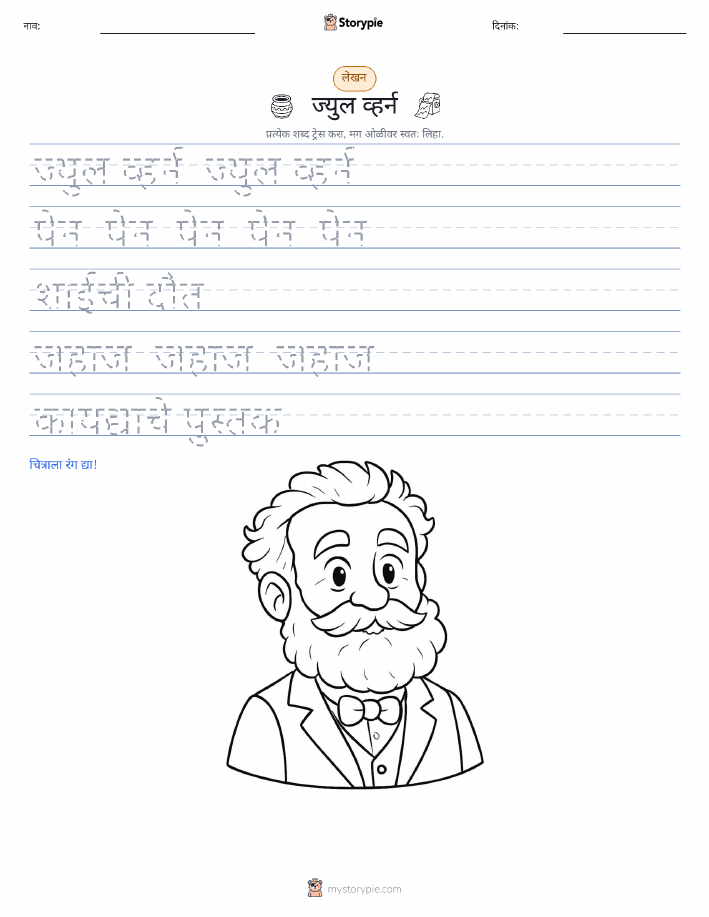 नाव: Storypie दिनांक:
लेखन
ज्युल व्हर्न
प्रत्येक शब्द ट्रेस करा, मग ओळीवर स्वतः लिहा.
ज्युल व्हर्न ज्युल व्हर्न
पेन पेन पेन पेन पेन
शाईची दौत
जहाज जहाज जहाज
कायद्याचे पुस्तक
चित्राला रंग द्या!
mystorypie.com